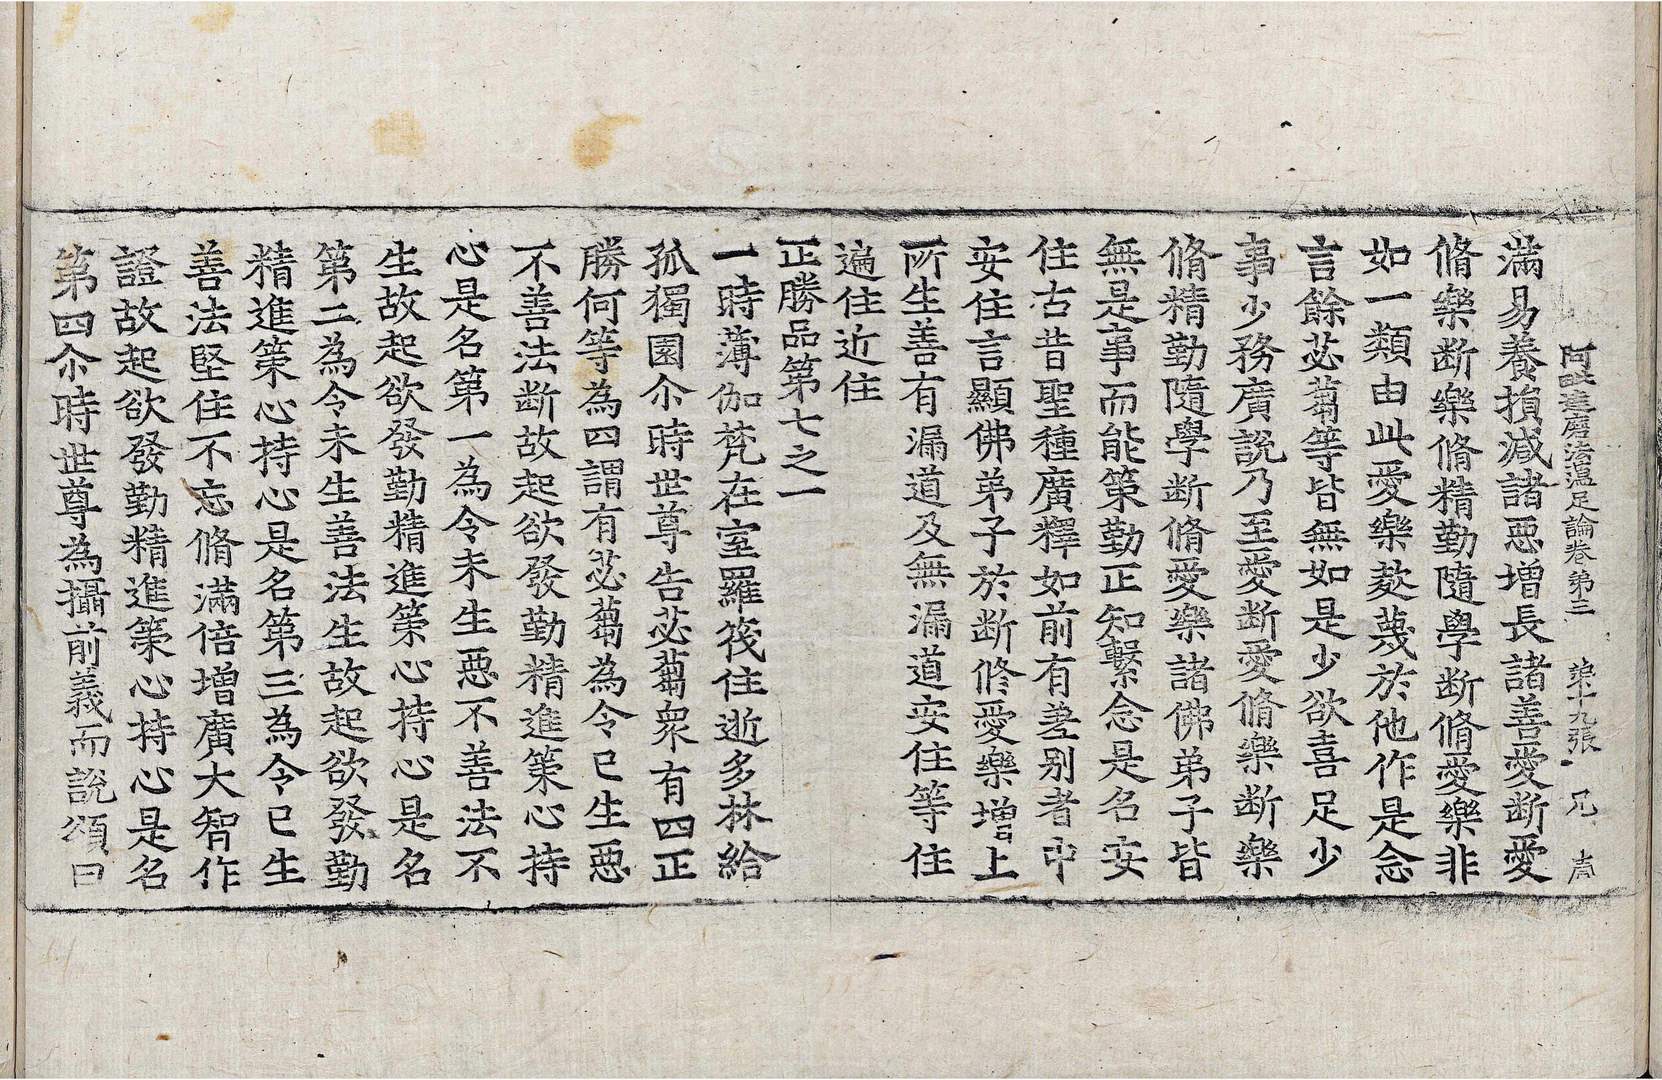 阿毗達磨法蕴足論卷第三　第十九張　兄
滿易養損減諸惡增長諸善愛断愛
脩樂断樂脩精勤隨學断脩愛樂非
如一類由此愛樂欻蔑於他作是念
言餘苾蒭等皆無如是少欲喜足少
事少務廣說乃至愛断愛脩樂断樂
脩精勤隨學断脩愛樂諸佛弟子皆
無是事而能策勤正知繫念是名安
住古昔聖種廣釋如前有差别者中
安住言顯佛弟子於断修愛樂增上
所生善有漏道及無漏道安住等住
遍住近住
正勝品第七之一
一時薄伽梵在室羅筏住逝多林給
孤獨園尒時世尊告苾蒭衆有四正
勝何等為四謂有苾蒭為令已生惡
不善法断故起欲發勤精進策心持
心是名第一為令未生惡不善法不
生故起欲發勤精進策心持心是名
第二為令未生善法生故起欲發勤
精進策心持心是名第三為令已生
善法堅住不忘脩滿倍增廣大智作
證故起欲發勤精進策心持心是名
第四尒時世尊為攝前義而說頌曰